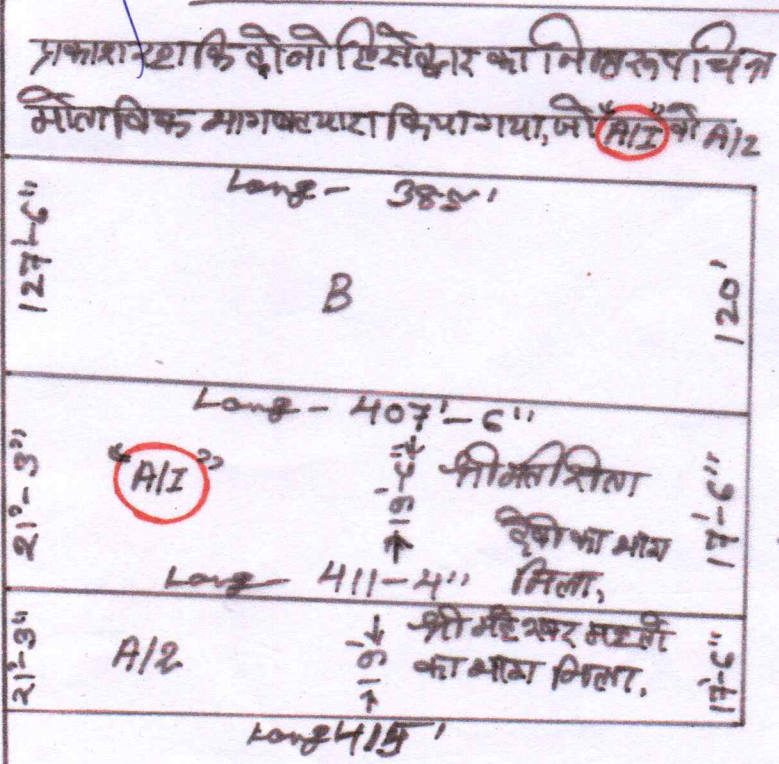 प्रकाश रहा कि दोनो हिस्सेदार का निम्नरूप चित्र
मोताबिक भाग बटवारा किया गया, जो "A/I" वो A/2
Long - 385'
127'-6"
B
120'
Long - 407'-6"
21'-3"
"A/I"
19'-6"
श्रीमती शिला
देवी का भाग
मिला,
17'-6"
Long 411-4"
21'-3"
A/2
19'
श्री महेश्वर महतो
का भाग मिला.
17'-6"
Long 415'